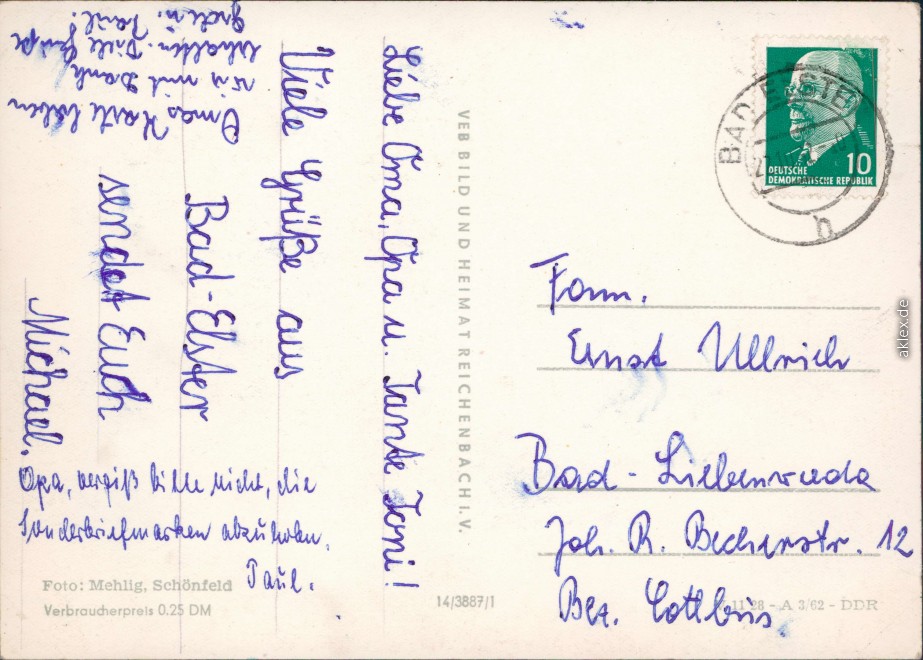 Liebe Oma, Opa u. Tante Toni!
Viele Grüße aus
Bad-Elster
sendet Euch
Michael.
Omas Karte haben
wir mit Dank
erhalten. Viele Grüße
Grete u. Paul.
Opa, vergiß bitte nicht, die
Sonderbriefmarken abzuholen.
Paul.
Foto: Mehlig, Schönfeld
Verbraucherpreis 0.25 DM
VEB BILD UND HEIMAT REICHENBACH I.V.
14/3887/1
BAD ELSTER
b
10
DEUTSCHE
DEMOKRATISCHE REPUBLIK
Fam.
Ernst Ullrich
Bad-Liebenwerda
Joh. R. Becherstr. 12
Bez. Cottbus.
11 28 - A 3/62 - DDR
aklex.de